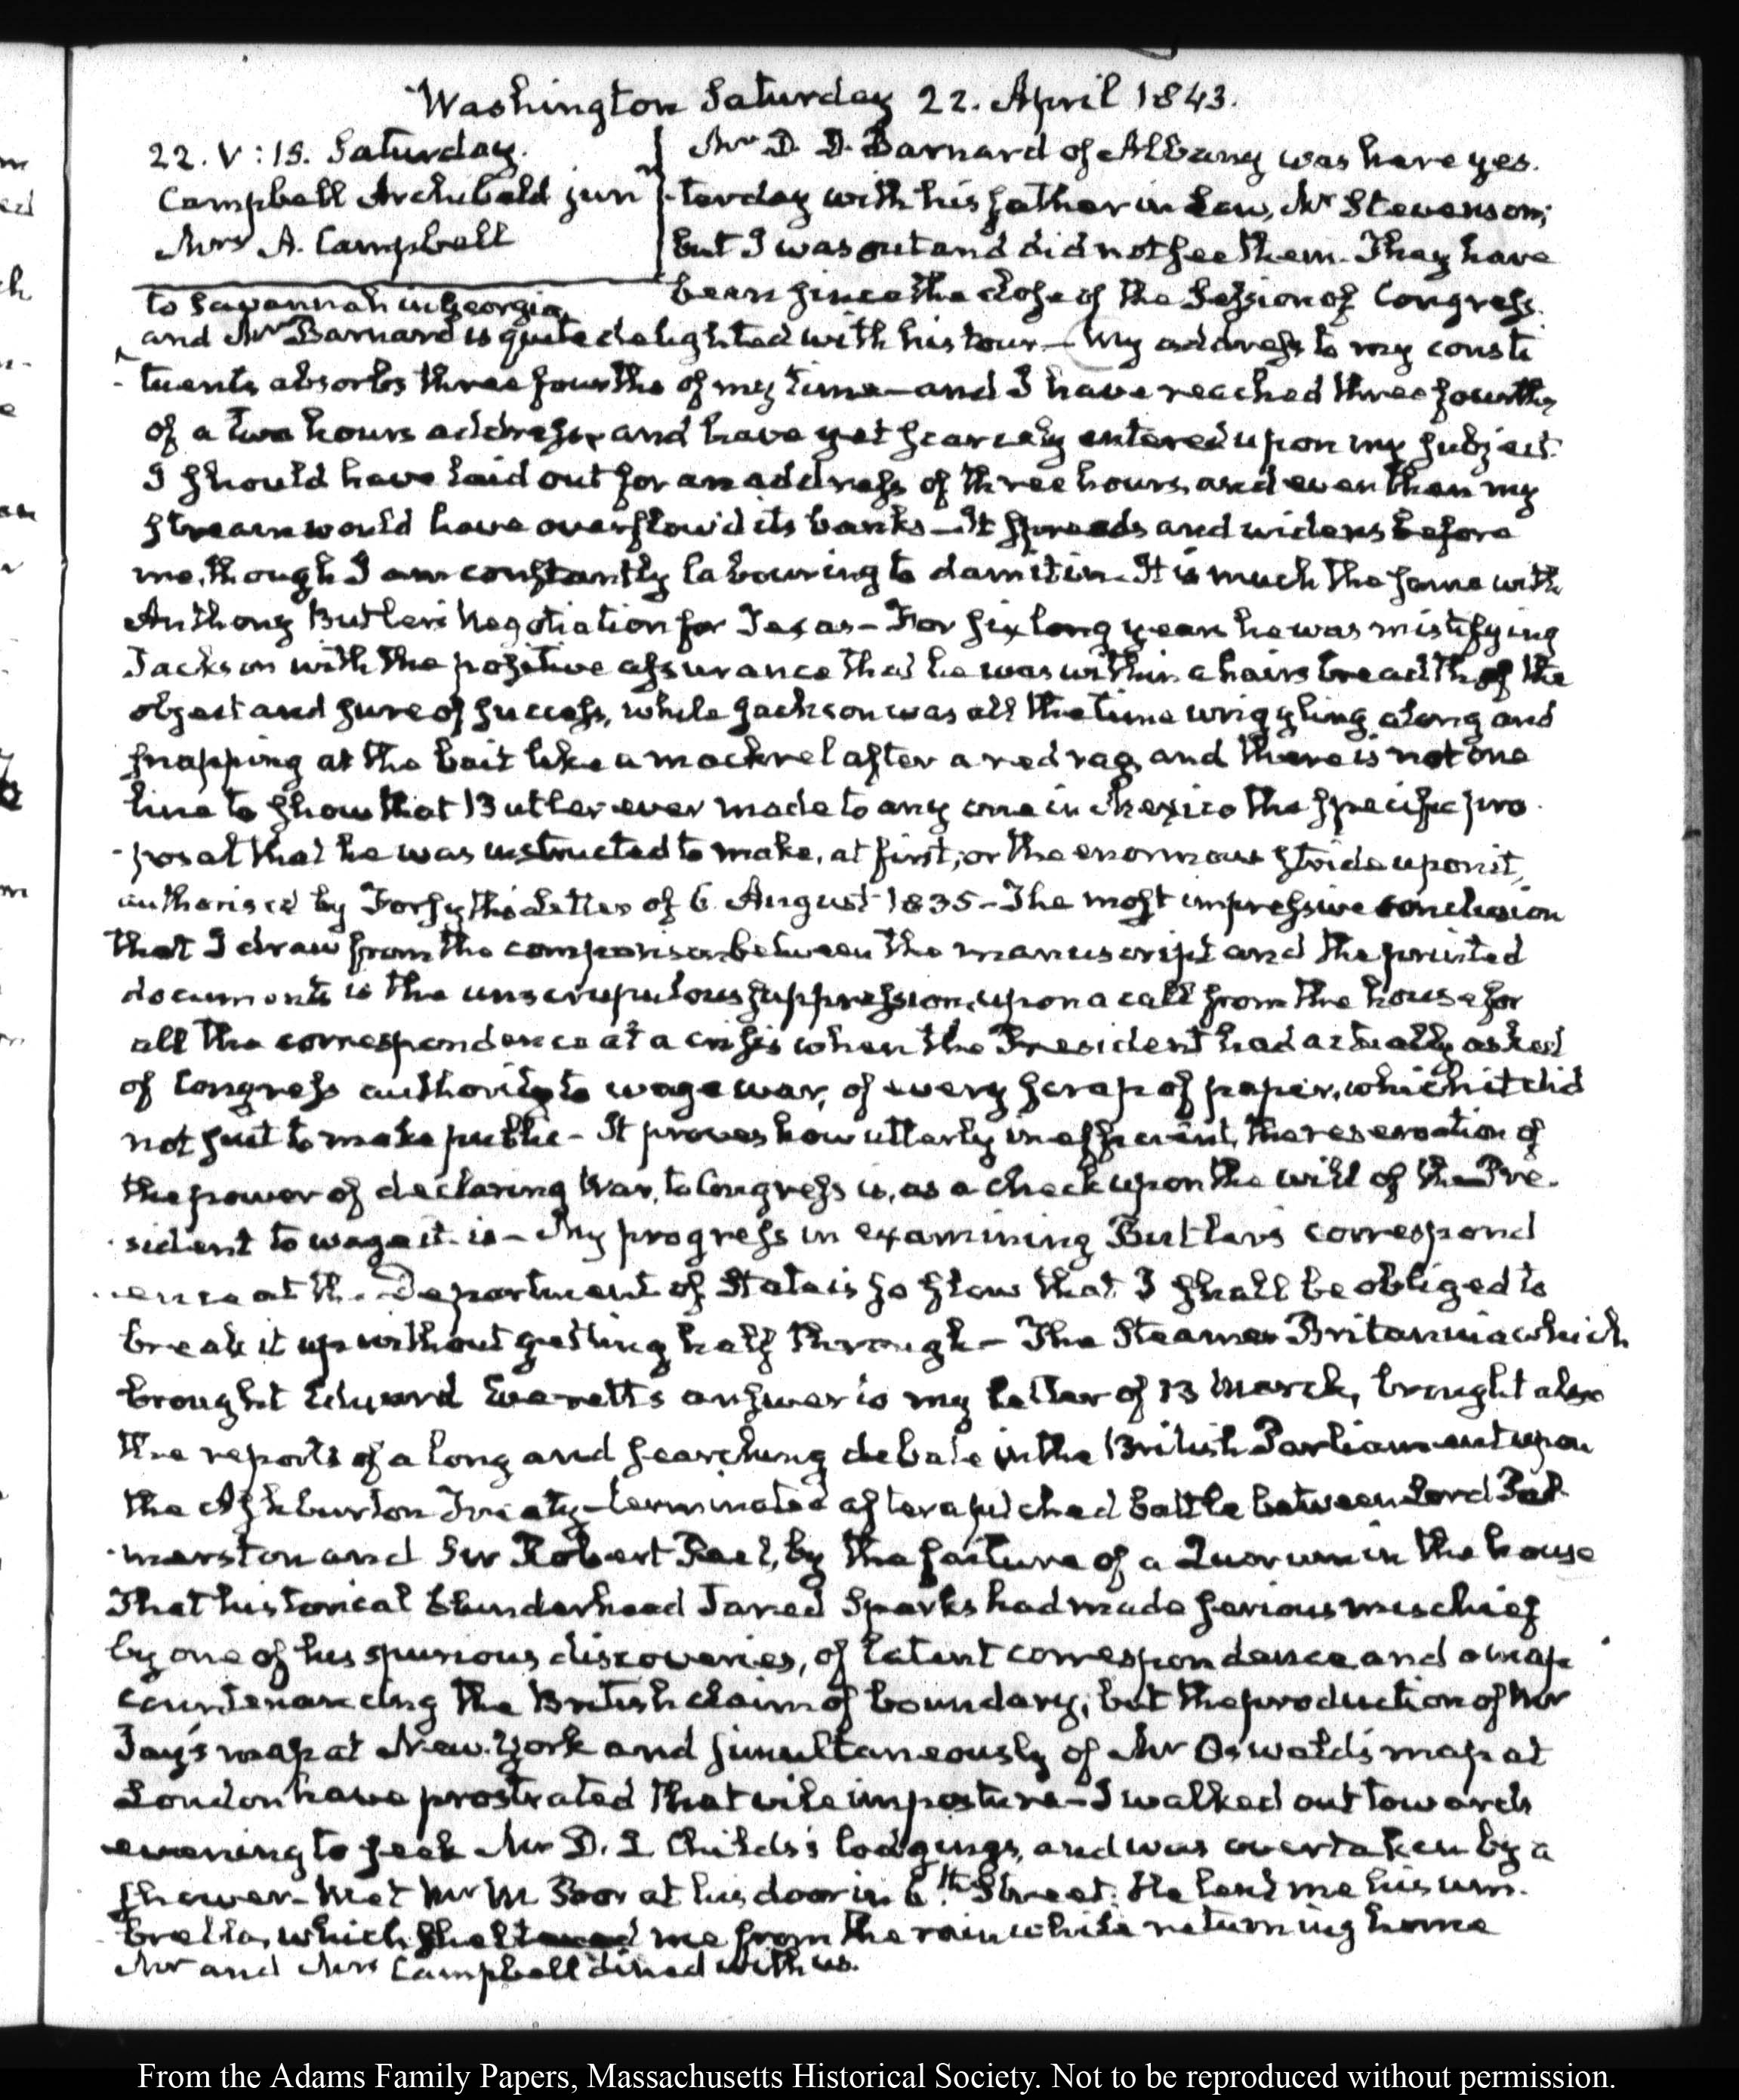 Washington Saturday 22. April 1843.
22. V:15. Saturday.
Campbell Archibald junr
Mrs A. Campbell
Mr D. D. Barnard of Albany was here yes-
-terday with his father in Law, Mr Stevenson;
but I was out and did not see them. They have
been since the close of the Session of Congress
to Savannah in Georgia,
and Mr Barnard is quite delighted with his tour – My address to my consti
-tuents absorbs three fourths of my time – and I have reached three fourths
of a two hours address, and have yet scarcely entered upon my subject.
I should have laid out for an address of three hours, and even then my
stream would have overflow'd its banks – It spreads and widens before
me, though I am constantly labouring to dam it in. It is much the same with
Anthony Butler's Negotiation for Texas – For six long years he was mistifying
Jackson with the positive assurance that he was within a hairs breadth of the
object and sure of success, while Jackson was all the time wriggling along and
snapping at the bait like a mackrel after a red rag, and there is not one
line to show that Butler ever made to any one in Mexico the specific pro-
-posal that he was instructed to make, at first, or the enormous stride upon it,
authorised by Forsyth's Letter of 6. August 1835 – The most impressive conclusion
that I draw from the comparison between the manuscript and the printed
documents is the unscrupulous suppression, upon a call from the house for
all the correspondence at a crisis when the President had actually asked
of Congress authority to wage war, of every scrap of paper, which it did
not suit to make public – It proves how utterly inefficient, the reservation of
the power of declaring War, to Congress is, as a check upon the will of the Pre-
-sident to wage it is – My progress in examining Butler's correspond
-ence at the Department of State is so slow that I shall be obliged to
break it up without getting half through – The Steamer Britannia which
brought Edward Everett's answer to my letter of 13 March, brought also
the reports of a long and searching debate in the British Parliament upon
the Ashburton Treaty – terminated after a pitched battle between Lord Pal-
-merston and Sir Robert Peel, by the failure of a Quorum in the house
That historical blunderhead Jared Sparks had made serious mischief
by one of his spurious discoveries, of latent correspondence and a map
countenancing the British claim of boundary; but the production of Mr
Jay's map at New-York and simultaneously of Mr Oswald's map at
London have prostrated that vile imposture – I walked out towards
evening to seek Mr D. L Childs's lodgings, and was overtaken by a
shower – Met Mr M at his door in 6th Street. He lent me his um-
-brella, which sheltered me from the rain while returning home
Mr and Mrs Campbell dined with us.
From the Adams Family Papers, Massachusetts Historical Society. Not to be reproduced without permission.